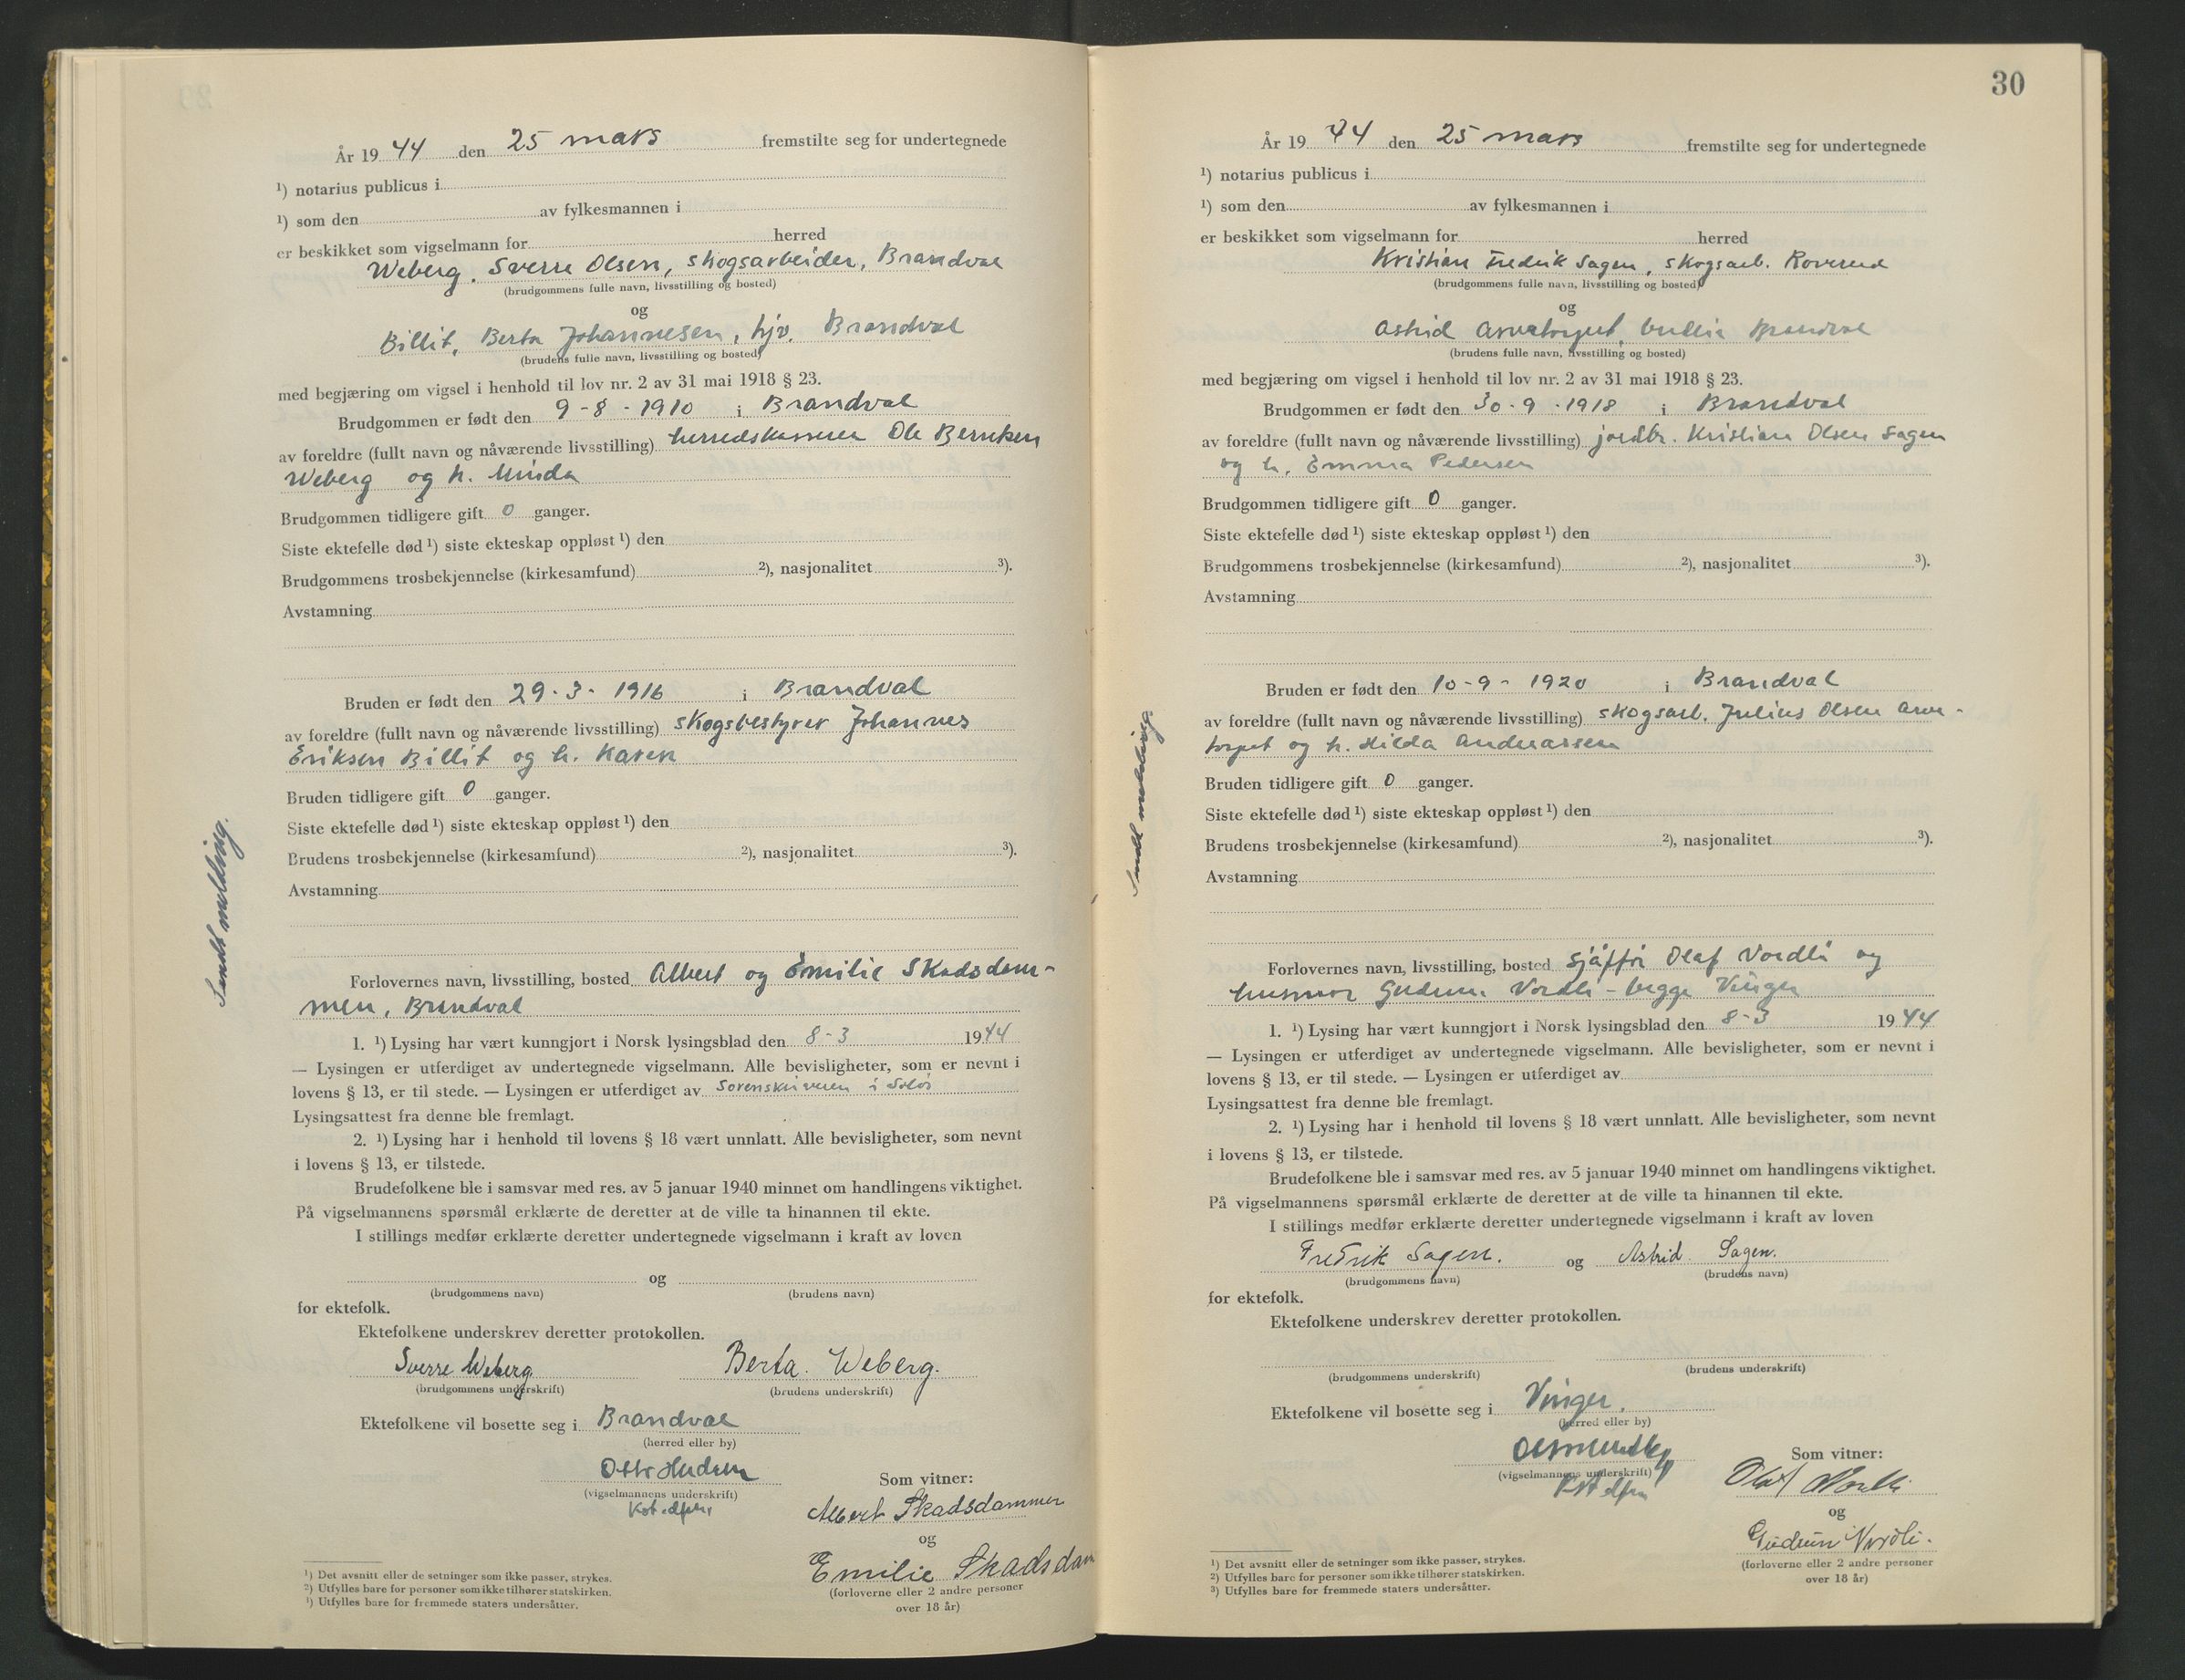 År 19 44 den 25 mars fremstilte seg for undertegnede
¹) notarius publicus i
¹) som den av fylkesmannen i
er beskikket som vigselmann for herred
Weberg, Sverre Olsen, skogsarbeider, Brandval
(brudgommens fulle navn, livsstilling og bosted)
og
Billit, Berta Johannesen, hjv. Brandval
(brudens fulle navn, livsstilling og bosted)
med begjæring om vigsel i henhold til lov nr. 2 av 31 mai 1918 § 23.
Brudgommen er født den 9-8-1910 i Brandval
av foreldre (fullt navn og nåværende livsstilling) herredskasserer Ole Berntsen
Weberg og h. Minda
Brudgommen tidligere gift 0 ganger.
Siste ektefelle død ¹) siste ekteskap oppløst ¹) den
Brudgommens trosbekjennelse (kirkesamfund) ²), nasjonalitet ³).
Avstamning
Bruden er født den 29-3-1916 i Brandval
av foreldre (fullt navn og nåværende livsstilling) skogsbestyrer Johannes
Eriksen Billit og h. Karen
Bruden tidligere gift 0 ganger.
Siste ektefelle død ¹) siste ekteskap oppløst ¹) den
Brudens trosbekjennelse (kirkesamfund) ²), nasjonalitet ³).
Avstamning
Sendt melding.
Forlovernes navn, livsstilling, bosted Albert og Emilie Skadsdam-
men, Brandval
1. ¹) Lysing har vært kunngjort i Norsk lysingsblad den 8-3 1944
— Lysingen er utferdiget av undertegnede vigselmann. Alle bevisligheter, som er nevnt i
lovens § 13, er til stede. — Lysingen er utferdiget av Sorenskriveren i Solør
Lysingsattest fra denne ble fremlagt.
2. ¹) Lysing har i henhold til lovens § 18 vært unnlatt. Alle bevisligheter, som nevnt
i lovens § 13, er tilstede.
Brudefolkene ble i samsvar med res. av 5 januar 1940 minnet om handlingens viktighet.
På vigselmannens spørsmål erklærte de deretter at de ville ta hinannen til ekte.
I stillings medfør erklærte deretter undertegnede vigselmann i kraft av loven
og
(brudgommens navn) (brudens navn)
for ektefolk.
Ektefolkene underskrev deretter protokollen.
Sverre Weberg Berta Weberg.
(brudgommens underskrift) (brudens underskrift)
Ektefolkene vil bosette seg i Brandval
(herred eller by)
Otto
(vigselmannens underskrift)
Som vitner:
Albert Skadsdammen
og
Emilie Skadsdam
(forloverne eller 2 andre personer
over 18 år)
¹) Det avsnitt eller de setninger som ikke passer, strykes.
²) Utfylles bare for personer som ikke tilhører statskirken.
³) Utfylles bare for fremmede staters undersåtter.
30
År 19 44 den 25 mars fremstilte seg for undertegnede
¹) notarius publicus i
¹) som den av fylkesmannen i
er beskikket som vigselmann for herred
Kristian Fredrik Sagen, skogsarb. Roverud
(brudgommens fulle navn, livsstilling og bosted)
og
Astrid Brandval
(brudens fulle navn, livsstilling og bosted)
med begjæring om vigsel i henhold til lov nr. 2 av 31 mai 1918 § 23.
Brudgommen er født den 30-9-1918 i Brandval
av foreldre (fullt navn og nåværende livsstilling) jordbr. Kristian Olsen Sagen
og h. Emma Pedersen
Brudgommen tidligere gift 0 ganger.
Siste ektefelle død ¹) siste ekteskap oppløst ¹) den
Brudgommens trosbekjennelse (kirkesamfund) ²), nasjonalitet ³).
Avstamning
Bruden er født den 10-9-1920 i Brandval
av foreldre (fullt navn og nåværende livsstilling) skogsarb. Julius Olsen
og h. Hilda Andreassen
Bruden tidligere gift 0 ganger.
Siste ektefelle død ¹) siste ekteskap oppløst ¹) den
Brudens trosbekjennelse (kirkesamfund) ²), nasjonalitet ³).
Avstamning
Sendt melding
Forlovernes navn, livsstilling, bosted sjåfør Olaf Nordli og
husmor Gudrun Nordli - begge Vinger
1. ¹) Lysing har vært kunngjort i Norsk lysingsblad den 8-3 1944
— Lysingen er utferdiget av undertegnede vigselmann. Alle bevisligheter, som er nevnt i
lovens § 13, er til stede. — Lysingen er utferdiget av
Lysingsattest fra denne ble fremlagt.
2. ¹) Lysing har i henhold til lovens § 18 vært unnlatt. Alle bevisligheter, som nevnt
i lovens § 13, er tilstede.
Brudefolkene ble i samsvar med res. av 5 januar 1940 minnet om handlingens viktighet.
På vigselmannens spørsmål erklærte de deretter at de ville ta hinannen til ekte.
I stillings medfør erklærte deretter undertegnede vigselmann i kraft av loven
Fredrik Sagen. og Astrid Sagen.
(brudgommens navn) (brudens navn)
for ektefolk.
Ektefolkene underskrev deretter protokollen.
(brudgommens underskrift) (brudens underskrift)
Ektefolkene vil bosette seg i Vinger.
(herred eller by)
(vigselmannens underskrift)
Som vitner:
Olaf Nordli
og
Gudrun Nordli.
(forloverne eller 2 andre personer
over 18 år)
¹) Det avsnitt eller de setninger som ikke passer, strykes.
²) Utfylles bare for personer som ikke tilhører statskirken.
³) Utfylles bare for fremmede staters undersåtter.